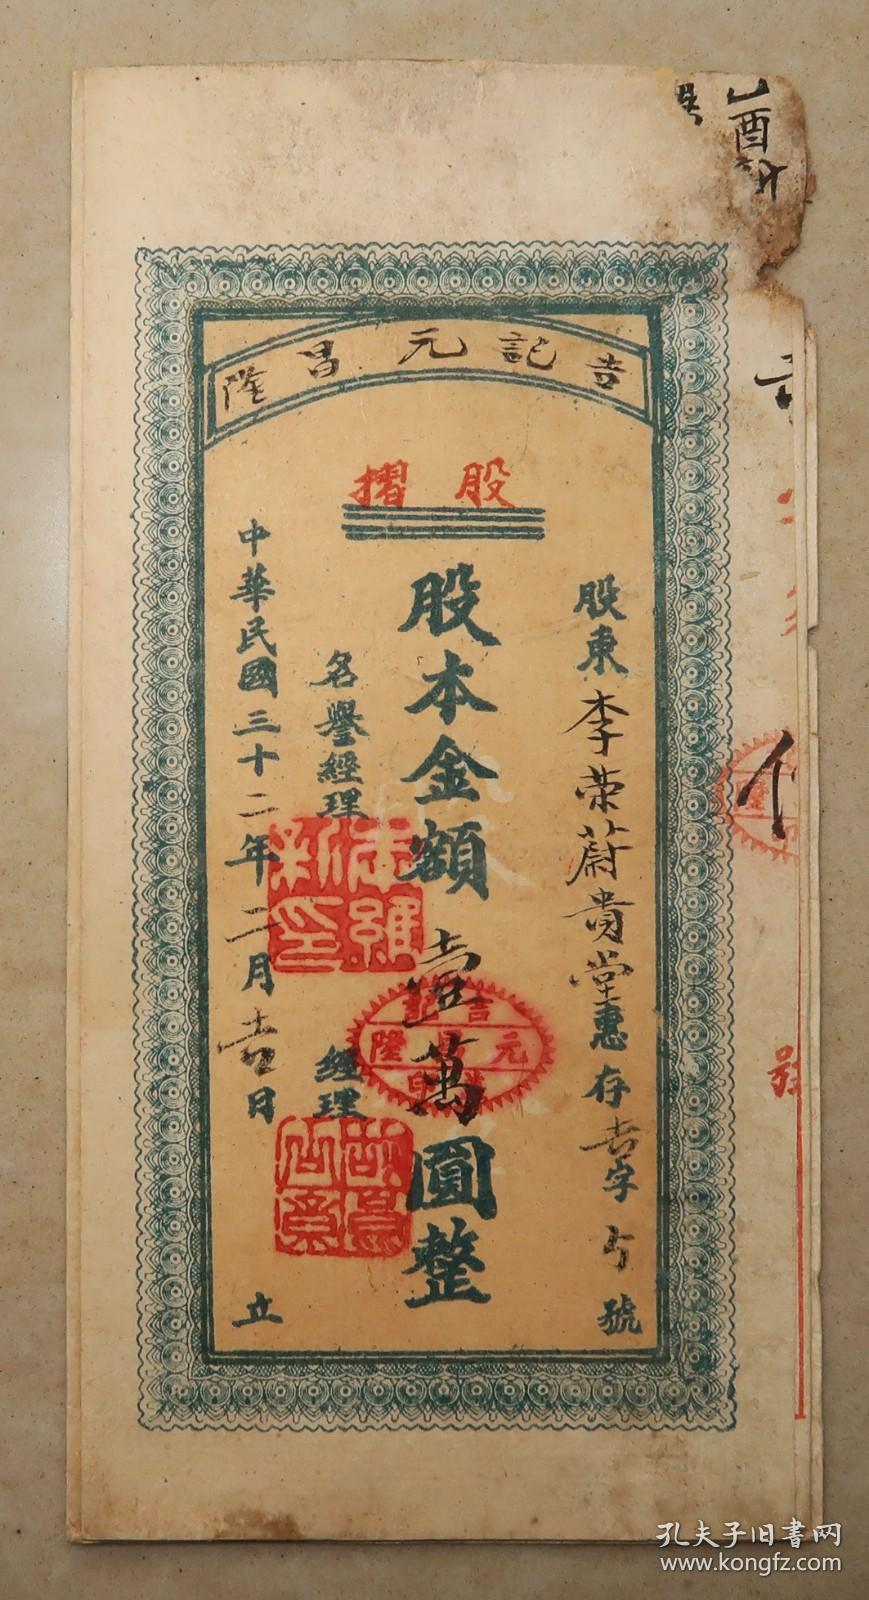 吉記元昌隆
股摺
股東李荣蔚貴堂惠存吉字号號
股本金額壹萬圓整
名譽經理
經理
中華民國三十二年二月吉日立
吉記
元昌隆
乙酉
号
號
孔夫子旧書网
www.kongfz.com